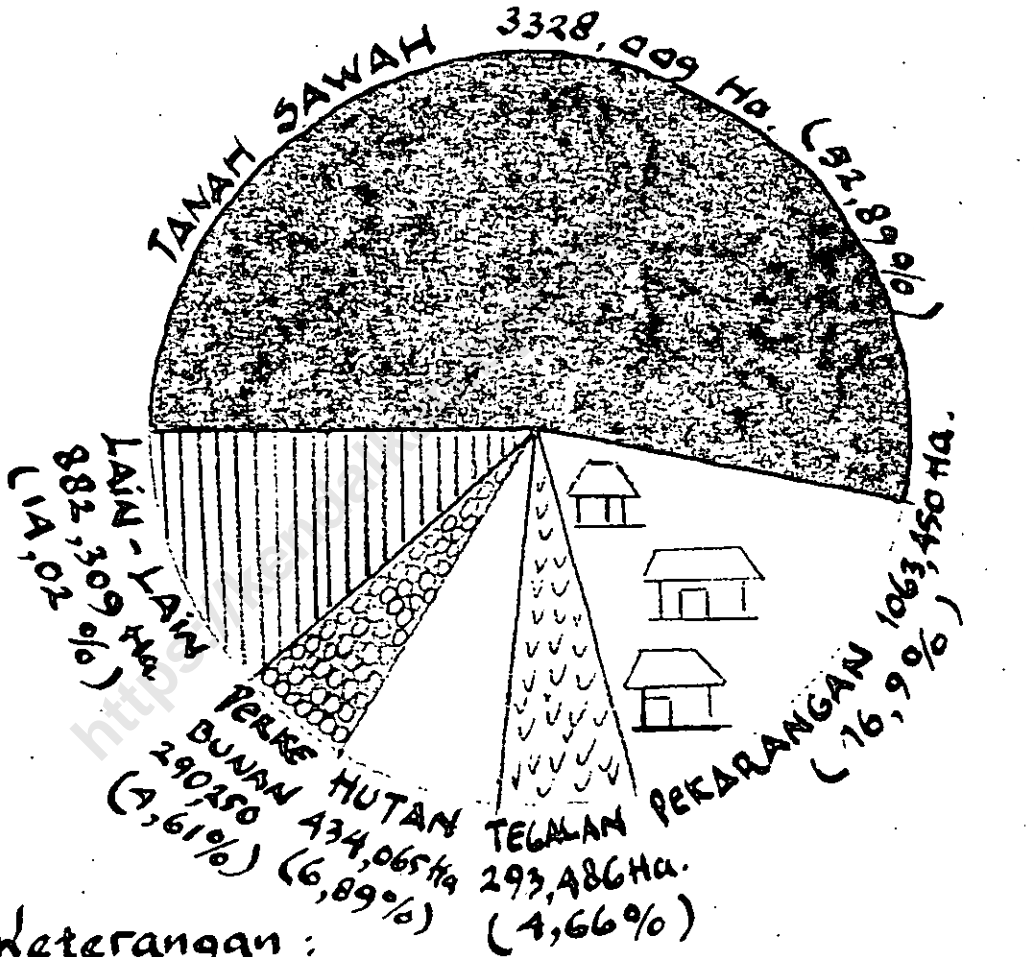 TANAH SAWAH 3328,009 Ha. (52,89%)
PEKARANGAN 1063,450 Ha.
(16,9%)
TEGALAN
293,486 Ha.
(4,66%)
HUTAN
434,065 Ha
(6,89%)
PERKE
BUNAN
290,250
(4,61%)
LAIN-LAIN
882,309 Ha
(14,02 %)
Keterangan :